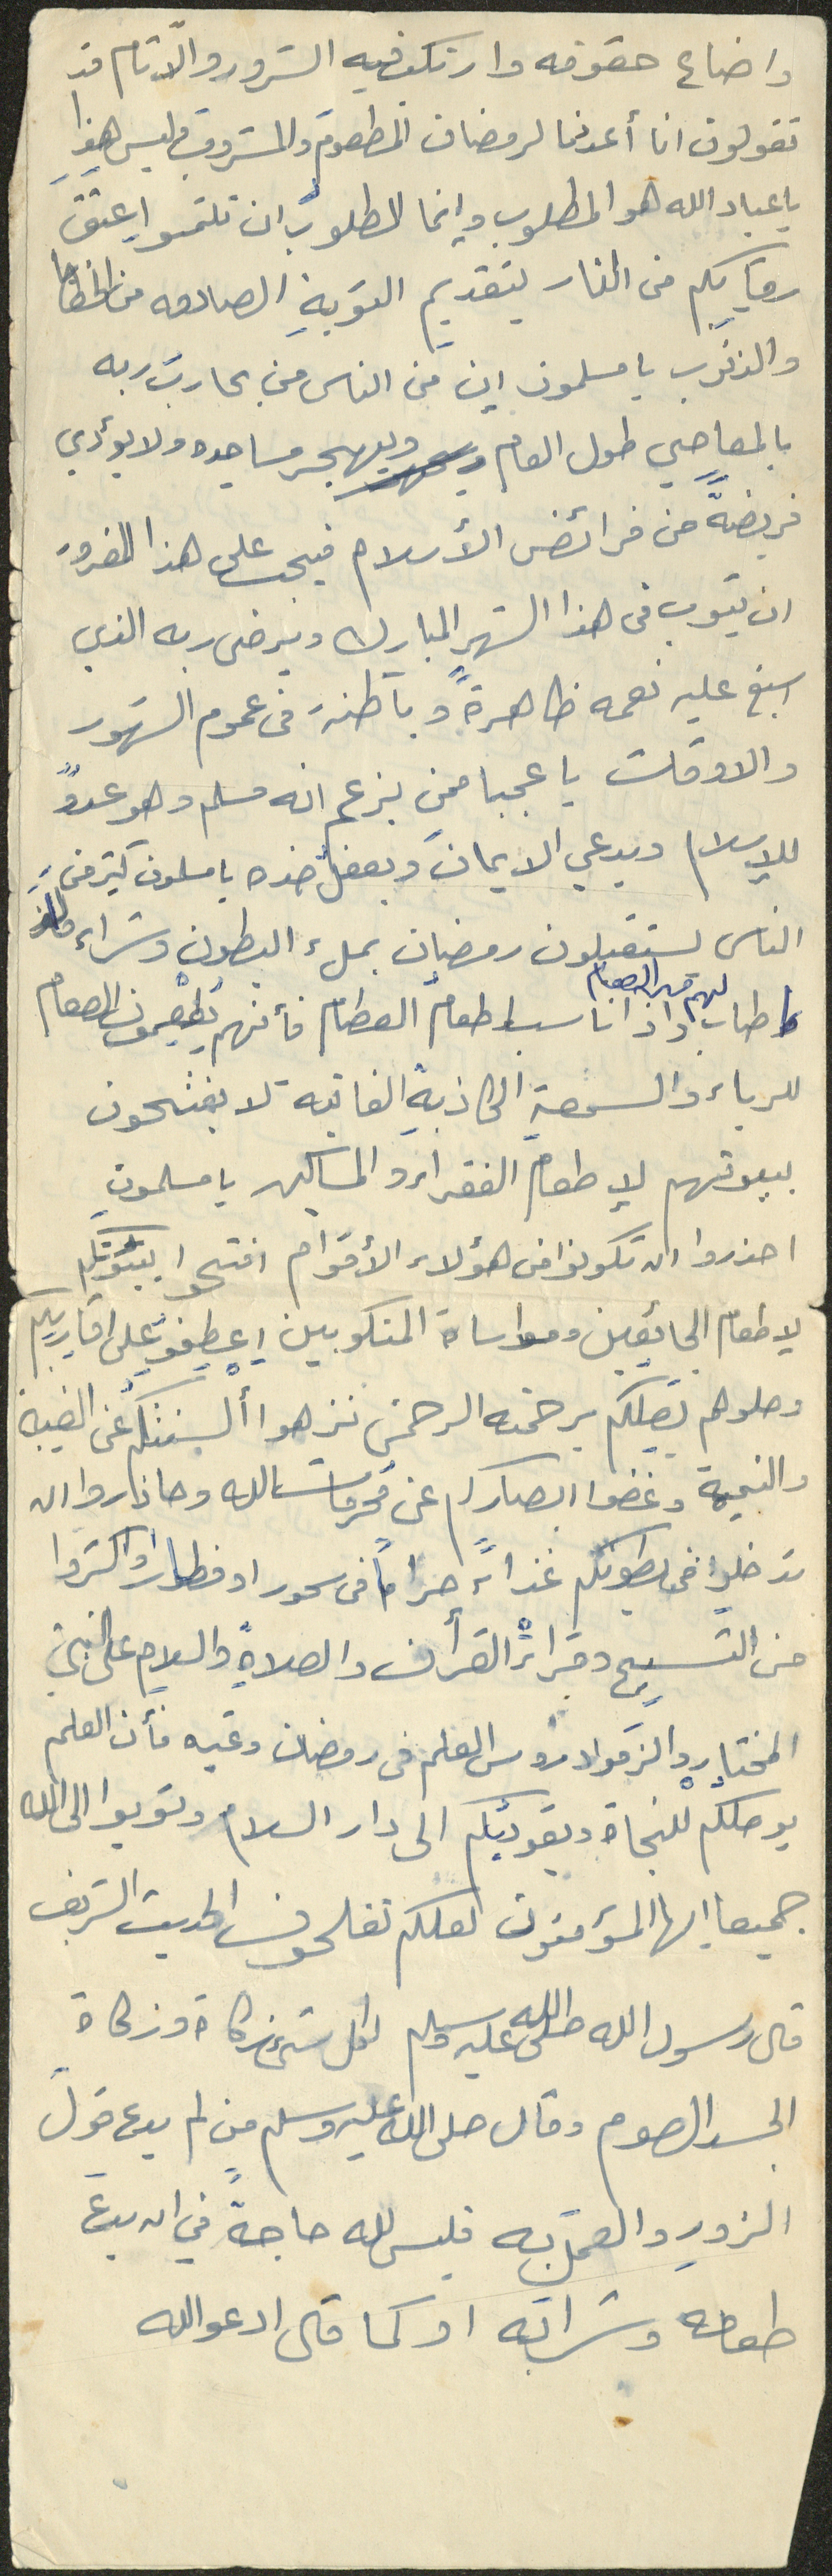 واضاع حقوقه وارتكب فيه الشرور والآثام قد
تقولون انا أعدنا لرمضان المطعوم والمشروب فليس هذا
يا عباد الله هو المطلوب وإنما المطلوب ان تلتمسوا عتق
رقابكم من النار بتقديم التوبة الصادقه من الخطايا
والذنوب يا مسلمون إن من الناس من يحارب ربه
بالمعاصي طول العام ويهجر مساجده ولا يؤدي
فريضةً من فرائض الأسلام فيجب على هذا المغرور
ان يتوب في هذا الشهر المبارك ويرضى ربه الذي
اسبغ عليه نعمه ظاهرةً وباطنة في عموم الشهور
والاوقات يا عجبا ممن يزعم انه مسلم وهو عدوٌ
للإسلام ويدعي الايمان ويفعل ضده يا مسلمون كثير من
الناس يستقبلون رمضان بملء البطون وشراء مالذ
وطاب لهم قبل الصيام واذا ناسب اطعام الطعام فأنهم يُطعمون الطعام
للرياء والسمعة الكاذبة الفانيه لا يفتحون
بيوتهم لإطعام الفقراء والمساكين يا مسلمون
احذروا ان تكونوا من هؤلاء الأقوام افتحوا بيوتكم
لإطعام الجائعين ومواساة المنكوبين إعطفو على اقاربكم
وصلوهم يصلكم برحمته الرحمن نزهوا ألسنتكم عن الغيبة
والنميمة وغضوا ابصاركم عن محرمات الله وحاذروا ان
تدخلوا في بطونكم غذاءً حراماً في سحور او فطار واكثروا
من التسبيح وقراءة القرأن والصلاة والسلام على النبي
المختار والزموا دروس العلم في رمضان وغيره فأن العلم
يوصلكم للنجاة ويقودكم الى دار السلام وتوبوا الى الله
جميعا ايها المؤمنون لعلكم تفلحون الحديث الشريف
قال رسول الله صلى الله عليه وسلم لكل شيء زكاة وزكاة
الجسد الصوم وقال صلى الله عليه وسلم من لم يدع قول
الزور والعمل به فليس لله حاجةً في ان يدع
طعامه وشرابه او كما قال ادعو الله